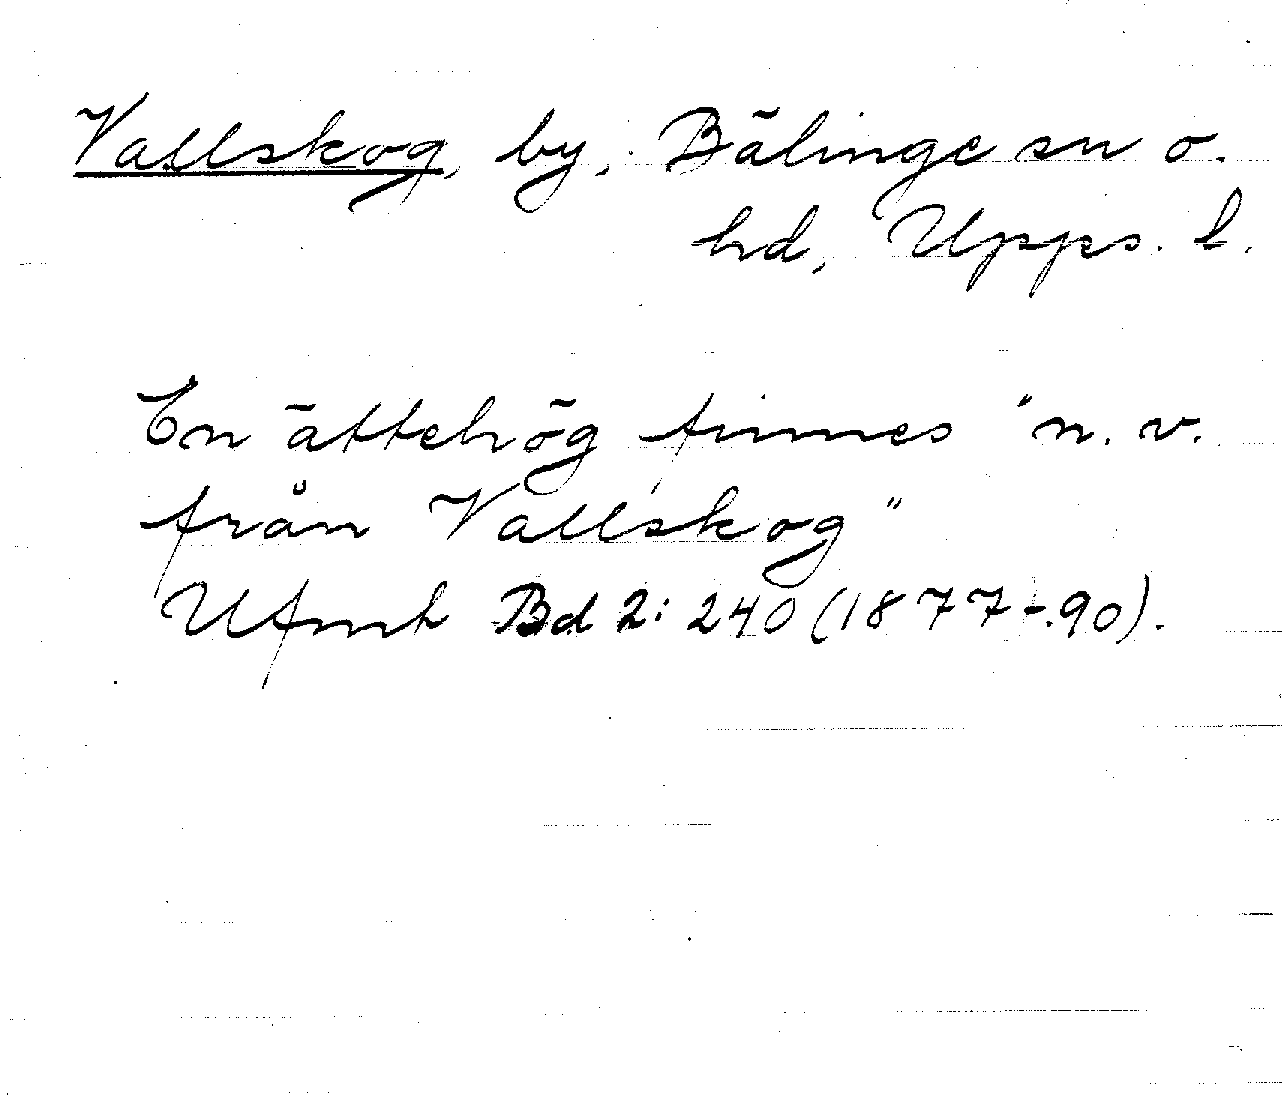 Vallskog, by, Bälinge sn o.
hd, Upps. l.
En ättehög finnes "n. v.
från Vallskog"
Ufmt Bd 2: 240 (1877-90).